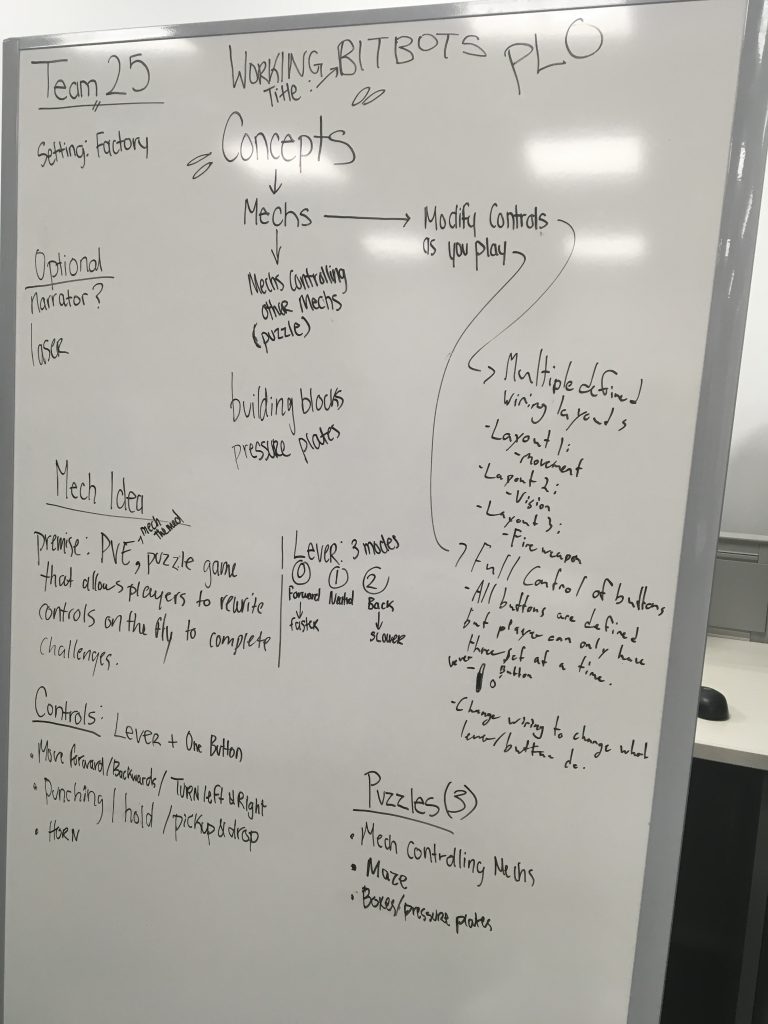 Team 25
WORKING
Title: BITBOTS
PLO
Setting: Factory
Concepts
Mechs
Modify Controls
as you play
Mechs Controlling
other Mechs
(puzzle)
Optional
narrator?
laser
building blocks
pressure plates
Multiple defined
wiring layouts
-Layout 1:
-movement
-Layout 2:
-Vision
-Layout 3:
-Fire weapon
Full Control of buttons
-All buttons are defined
but player can only have
three set at a time.
lever
Button
-Change wiring to change what
lever/button do.
Mech Idea
mech
themed
premise: PVE, puzzle game
that allows players to rewrite
controls on the fly to complete
challenges.
Lever: 3 modes
0 1 2
Forward Neutral Back
faster slower
Controls: Lever + One Button
• Move forward/Backwards/ TURN left & Right
• Punching / hold / pickup & drop
• HORN
Puzzles (3)
• Mech Controlling Mechs
• Maze
• Boxes/pressure plates